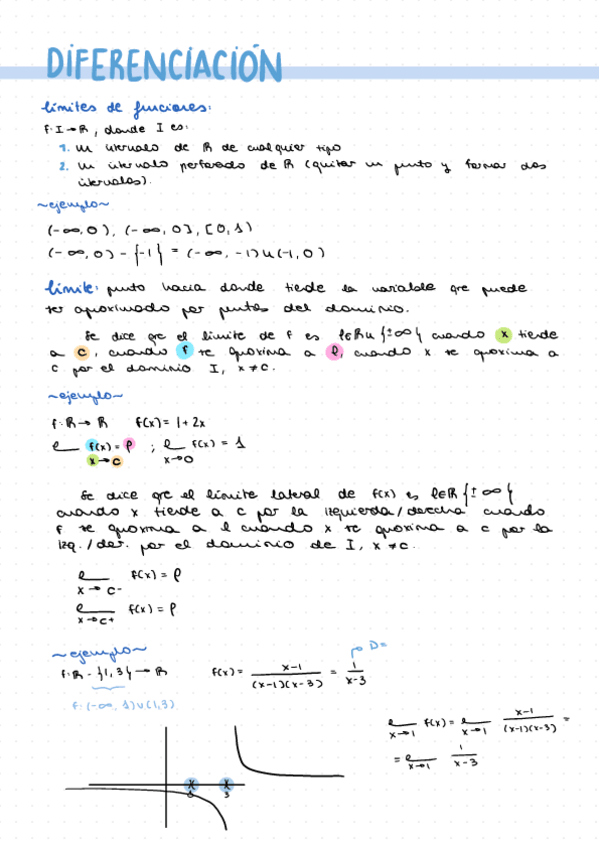 DIFERENCIACIÓN
límites de funciones:
f: I → ℝ, donde I es:
1. un intervalo de ℝ de cualquier tipo
2. un intervalo perforado de ℝ (quitar un punto y formar dos
intervalos).
~ejemplo~
(-∞,0), (-∞,0], [0,1)
(-∞,0) - {-1} = (-∞,-1)∪(-1,0)
límite: punto hacia donde tiende la variable que puede
ser aproximado por puntos del dominio.
Se dice que el límite de f es l∈ℝ∪{±∞} cuando x tiende
a c, cuando f se aproxima a l, cuando x se aproxima a
c por el dominio I, x≠c.
~ejemplo~
f: ℝ → ℝ f(x) = 1+2x
l f(x) = l ; l f(x) = 1
x→c x→0
Se dice que el límite lateral de f(x) es l∈ℝ{±∞}
cuando x tiende a c por la izquierda/derecha cuando
f se aproxima a l cuando x se aproxima a c por la
izq./der. por el dominio de I, x≠c.
l f(x) = l
x→c-
l f(x) = l
x→c+
~ejemplo~
D=
f: ℝ - {1,3} → ℝ f(x) = x-1 / (x-1)(x-3) = 1 / x-3
f: (-∞, 1)∪(1,3)
l f(x) = l x-1 / (x-1)(x-3) =
x→1 x→1
= l 1 / x-3
x→1
3